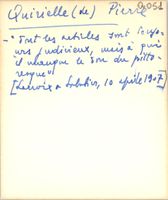 Quirielle (de) Pierre
0,051
- "Tout les articles sont toujo
urs judicieux, mais à qui
il manque le don du pitto-
resque"
[Lacroix à Sabatier, 10 aprile 1907]